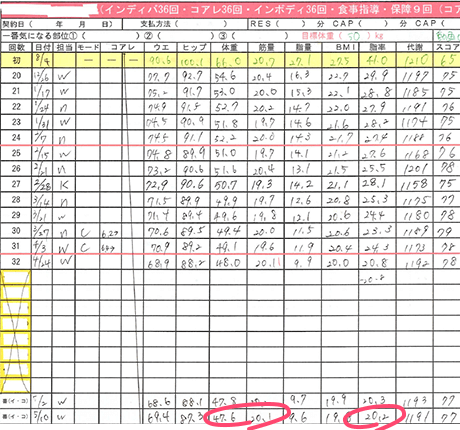 (インディバ36回・コアレ36回・インボディ36回・食事指導・保障9回（コア
契約日（ 年 月 日） 支払方法（ ） RES（ ）分 CAP（ ）分 コアレ
一番気になる部位①（ ）②（ ）③（ ）目標体重（50）kg
回数 日付 担当 モード コアレ ウエ ヒップ 体重 筋量 脂量 BMI 脂率 代謝 スコア
初 8/4 — — 90.6 100.1 66.0 20.7 27.1 27.5 41.0 1210 65
20 12/6 W 77.7 92.7 54.6 20.4 16.3 22.7 29.9 1197 75
21 1/17 W 75.2 91.7 53.0 20.0 15.3 22.1 28.8 1185 75
22 1/24 n 74.9 91.5 52.7 20.2 14.7 22.0 27.9 1191 76
23 1/31 W 74.5 90.9 51.8 19.7 14.6 21.6 28.2 1174 75
24 2/7 n 74.5 91.1 52.2 20.0 14.3 21.7 27.4 1188 76
25 2/15 W 74.8 89.9 51.0 19.7 14.1 21.2 27.6 1168 76
26 2/21 n 73.2 90.6 51.6 20.4 13.1 21.5 25.5 1201 78
27 2/28 K 72.9 90.6 50.7 19.3 14.2 21.1 28.1 1158 75
28 3/14 n 71.5 89.9 49.9 19.7 12.6 20.8 25.3 1175 77
29 3/21 W 71.4 89.4 49.6 19.8 12.1 20.6 24.4 1180 78
30 3/27 n C 70.6 89.5 49.4 20.0 11.5 20.6 23.3 1189 79
31 4/3 W C 70.9 89.2 49.1 19.6 11.9 20.4 24.3 1173 78
32 4/24 W 68.9 88.2 48.0 20.11 9.9 20.0 20.8 1192 78
-20.2
5/2 W 68.6 88.1 47.8 9.7 19.9 20.3 1193 77
5/10 W 69.4 87.3 47.6 20.1 9.6 20.2 1191 77